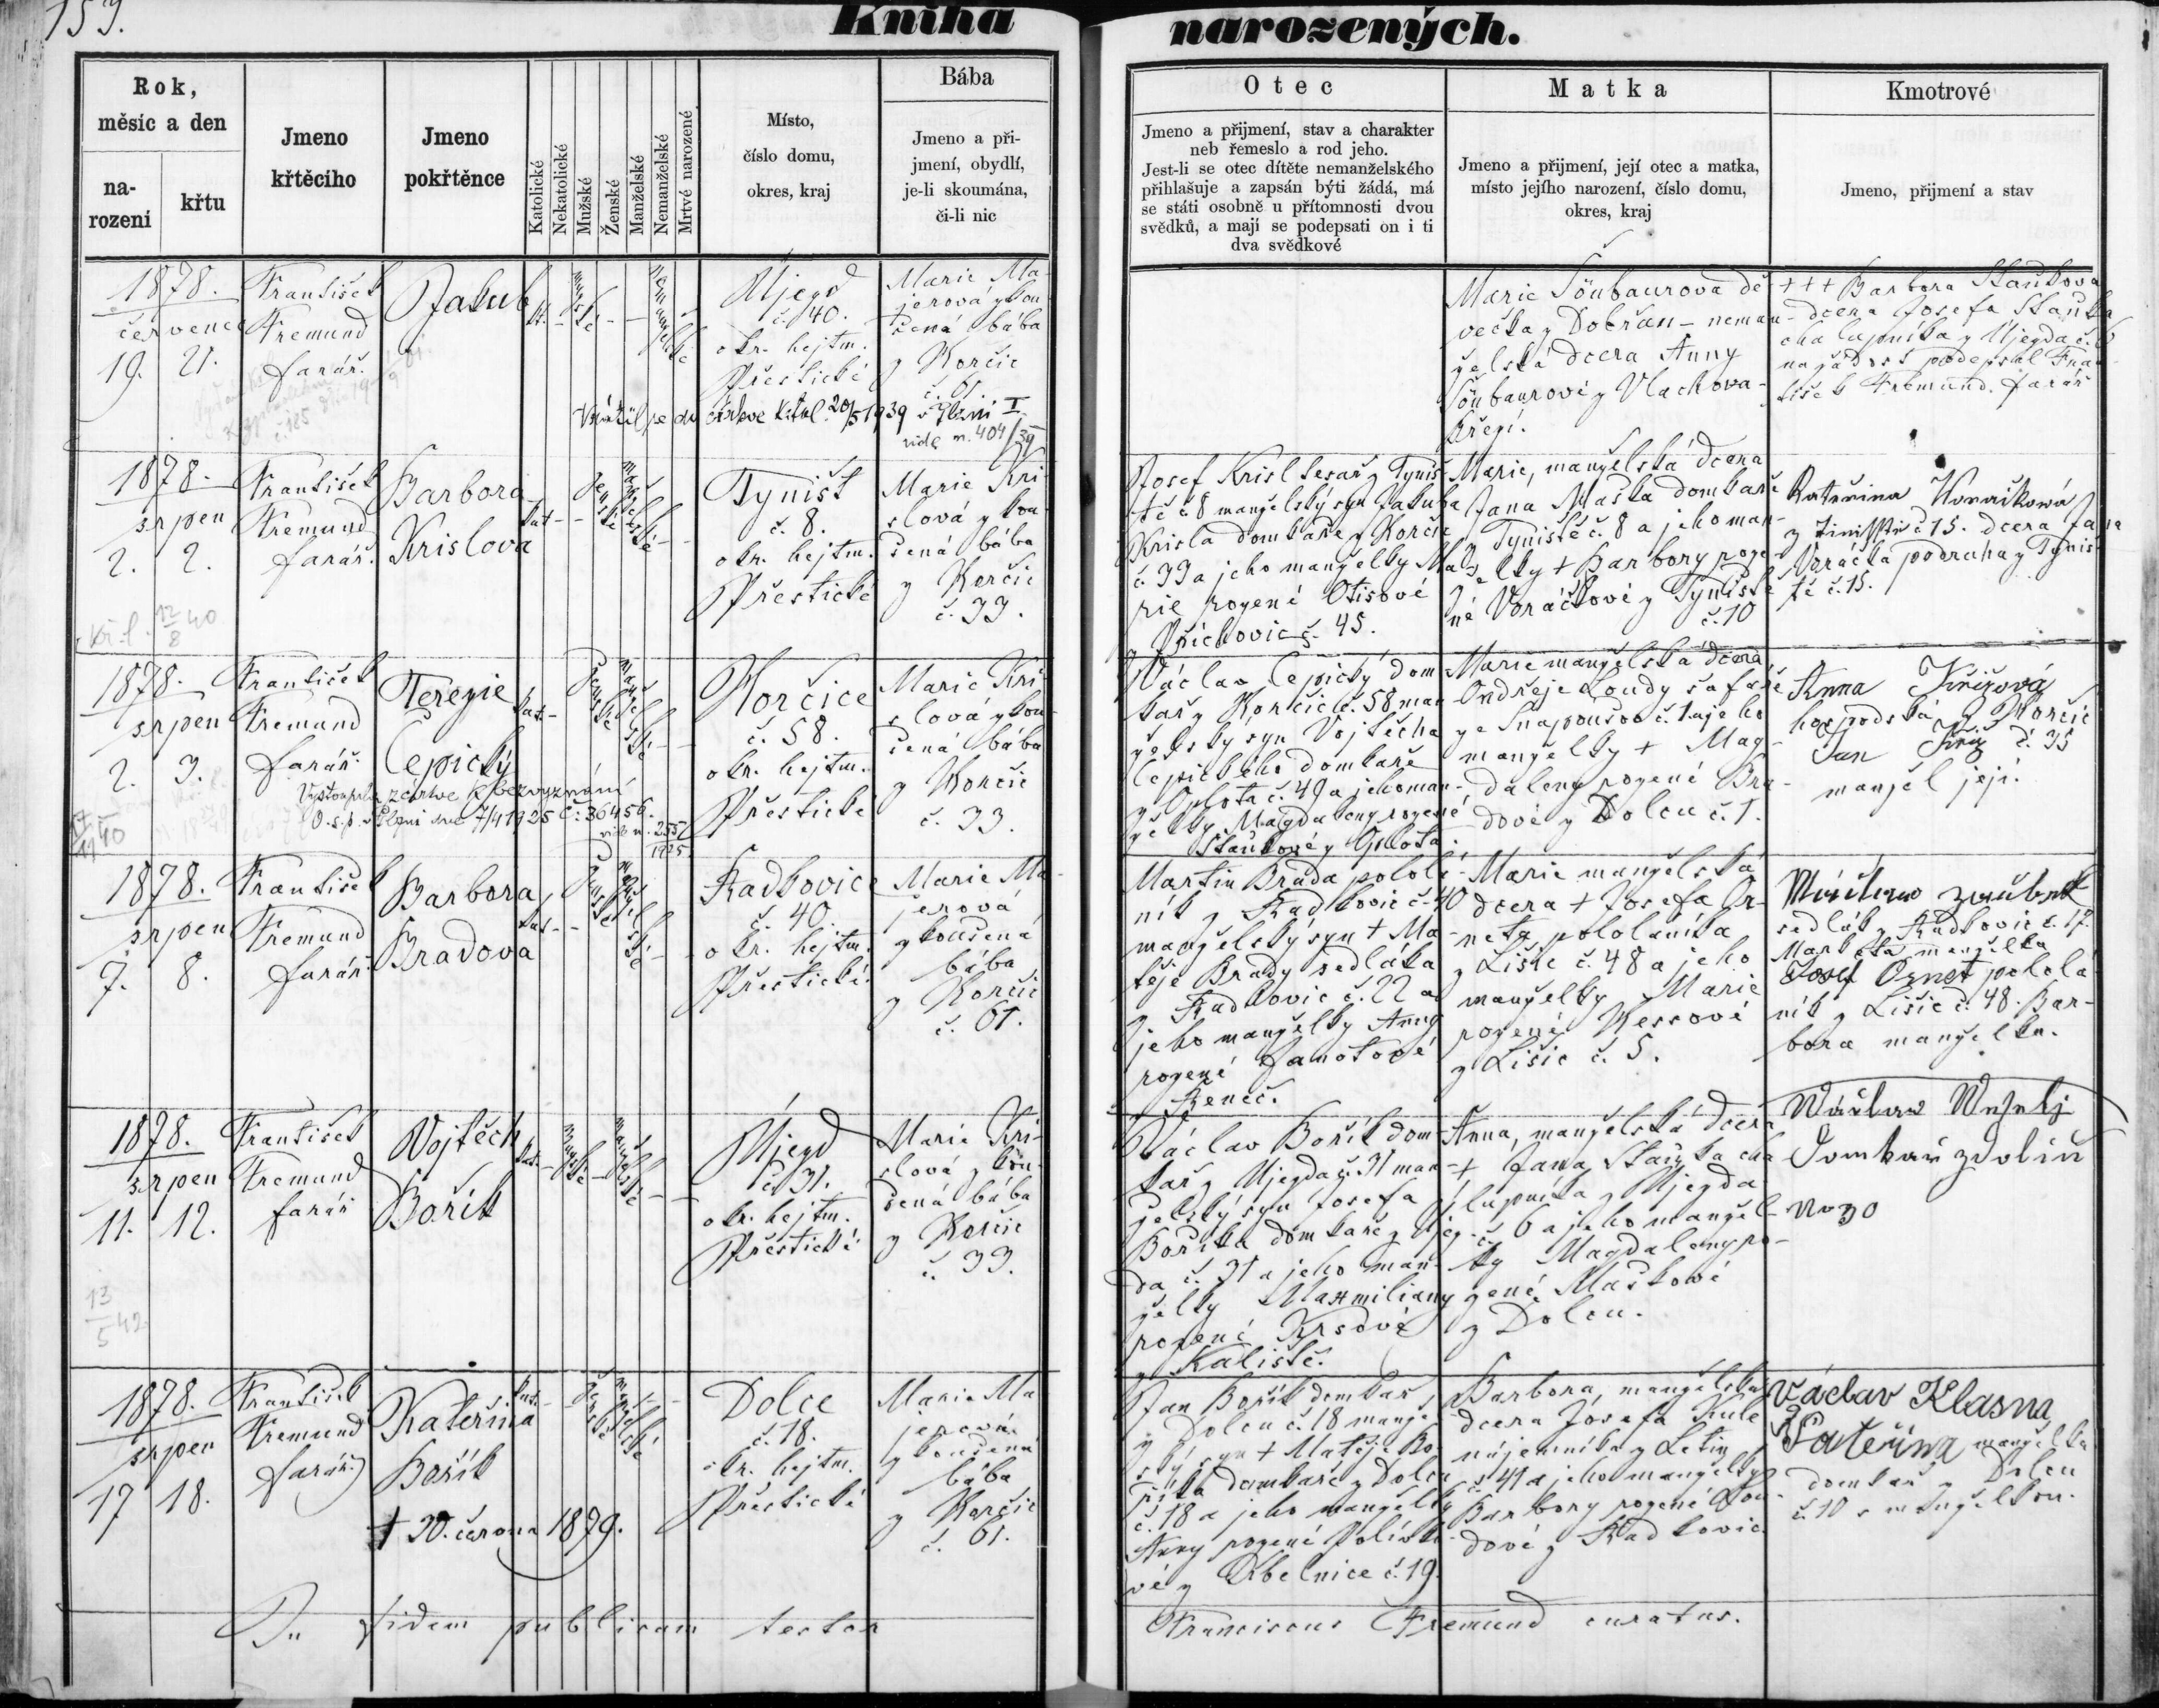 153.
Kniha narozených.
Rok,
měsíc a den
na-
rození
křtu
Jmeno
křtěcího
Jmeno
pokřtěnce
Katolické
Nekatolické
Mužské
Ženské
Manželské
Nemanželské
Mrtvé narozené
Místo,
číslo domu,
okres, kraj
Bába
Jmeno a při-
jmení, obydlí,
je-li skoumána,
či-li nic
Otec
Jmeno a přijmení, stav a charakter
neb řemeslo a rod jeho.
Jest-li se otec dítěte nemanželského
přihlašuje a zapsán býti žádá, má
se státi osobně u přítomnosti dvou
svědků, a mají se podepsati on i ti
dva svědkové
Matka
Jmeno a přijmení, její otec a matka,
místo jejího narození, číslo domu,
okres, kraj
Kmotrové
Jmeno, přijmení a stav
1878.
červenec
19. 21.
František
Fremund
farář.
Jakub
Újezd
č. 40.
okr. hejtm.
Přestické
Marie Ma-
jerová zkou-
šená bába
z Horčic
č. 61.
Vrátil se do církve kátol. 20/5 1939 v Plzni I
vide n. 404/39
Marie Šönbaurova dě-
večka z Dobřan - neman-
želská dcera Anny
Šönbaurové z Vlachova-
březí.
+++ Barbora Staňkova
dcera Josefa Staňka
chalupníka z Újezda č. 6
na žádost podepsal Fran-
tišek Fremund. farář
1878.
srpen
2. 2.
František
Fremund
farář.
Barbora
Krislova
kat-
ženské
manželské
Tyništ
č. 8.
okr. hejtm.
Přestické
Marie Kri-
slová zkou-
šená bába
z Horčic
č. 33.
Josef Krisl tesař z Tyniš-
tě č 8 manželský syn Jakuba
Krisla domkaře z Horčic
č. 33 a jeho manželky Ma-
rie rozené Otisové
z Příchovic č. 45.
Marie, manželská dcera
Jana Maška domkaře
z Tyniště č. 8 a jeho man-
želky + Barbory roze-
né Voráčkové z Tyniště
č. 10
Kateřina Woračkowá
č 15. dcera Jana
Voráčka podruha z Tyniš-
tě č. 15.
12/8 40
1878.
srpen
2. 3.
František
Fremund
farář.
Terezie
Čepický
kat-
ženské
manželské
Horčice
č. 58.
okr. hejtm.
Přestické
Marie Kri-
slová zkou-
šená bába
z Horčic
č. 33.
Vystoupila z církve k bezvyznání
O.s.p. v Plzni dne 7/4 1925 č: 36456.
vide n. 255/1925.
17/11 40
Václav Čepický dom-
kař z Horčic č. 58 man-
želský syn Vojtěcha
Čepického domkaře
z Oplota č. 49 a jeho man-
želky Magdaleny rozené
Staňkové z Oplota.
Marie manželská dcera
Ondřeje Loudy šafáře
ze Snopoušov č. 1. a jeho
manželky + Mag-
daleny rozené Bra-
dové z Dolcu č. 1.
Anna Křižová
hospodská z Horčic
Jan Křiž č. 35
manžel její.
1878.
srpen
7. 8.
František
Fremund
farář.
Barbora
Bradova
kat-
ženské
manželské
Radkovice
č. 40.
okr. hejtm.
Přestické.
Marie Ma-
jerová
zkoušená
bába
z Horčic
č. 61.
Martin Brada pololá-
ník z Radkovic č. 40
manželský syn + Ma-
těje Brady sedláka
z Radkovic č. 22 a
jeho manželky Anny
rozené Janotové
z Řeneč.
Marie manželská
dcera + Josefa Or-
neta pololáníka
z Lišic č. 48 a jeho
manželky Marie
rozené
z Lišic č. 5.
sedlák z Radkovic č. 17.
Markéta manželka
Josef Ornet pololá-
ník z Lišic č. 48. Bar-
bora manželka.
1878.
srpen
11. 12.
František
Fremund
farář
Vojtěch
Bořík
kat-
mužské
manželské
Újezd
č. 31.
okr. hejtm.
Přestické.
Marie Kri-
slová zkou-
šená bába
z Horčic
č. 33.
13/5 42
Václav Bořík dom-
kař z Újezda č. 31 man-
želský syn Josefa
Boříka domkaře z Újez-
da č. 31 a jeho man-
želky Maxmiliany
rozené Krsové
z Kaliště.
Anna, manželská dcera
+ Jana Staňka cha-
lupníka z Újezda
č. 6 a jeho manžel-
ky Magdaleny ro-
zené Maškové
z Dolcu.
Wáclaw Weselý
Domkař z dolců
No 30
1878.
srpen
17 18.
František
Fremund
farář
Kateřina
Bořík
† 30. června 1879.
kat-
ženské
manželské
Dolce
č. 18.
okr. hejtm.
Přestické
Marie Ma-
jerová
zkoušená
bába
z Horčic
č. 61.
Jan Bořík domkař
z Dolcu č. 18 manžel-
ský syn + Matěje Bo-
říka domkaře z Dolcu
č. 18 a jeho manželky
Anny rozené Polívko-
vé z Kbelnice č. 19.
Barbora, manželská
dcera Josefa Kule
nájemníka z Letin
č 41 a jeho manželky
Barbory rozené Lou-
dové z Radkovic
Václav Klasna
Kateřina manželka
domkař z Dolcu
č. 10 s manželkou.
In fidem publicam testor
Franciscus Fremund curatus.